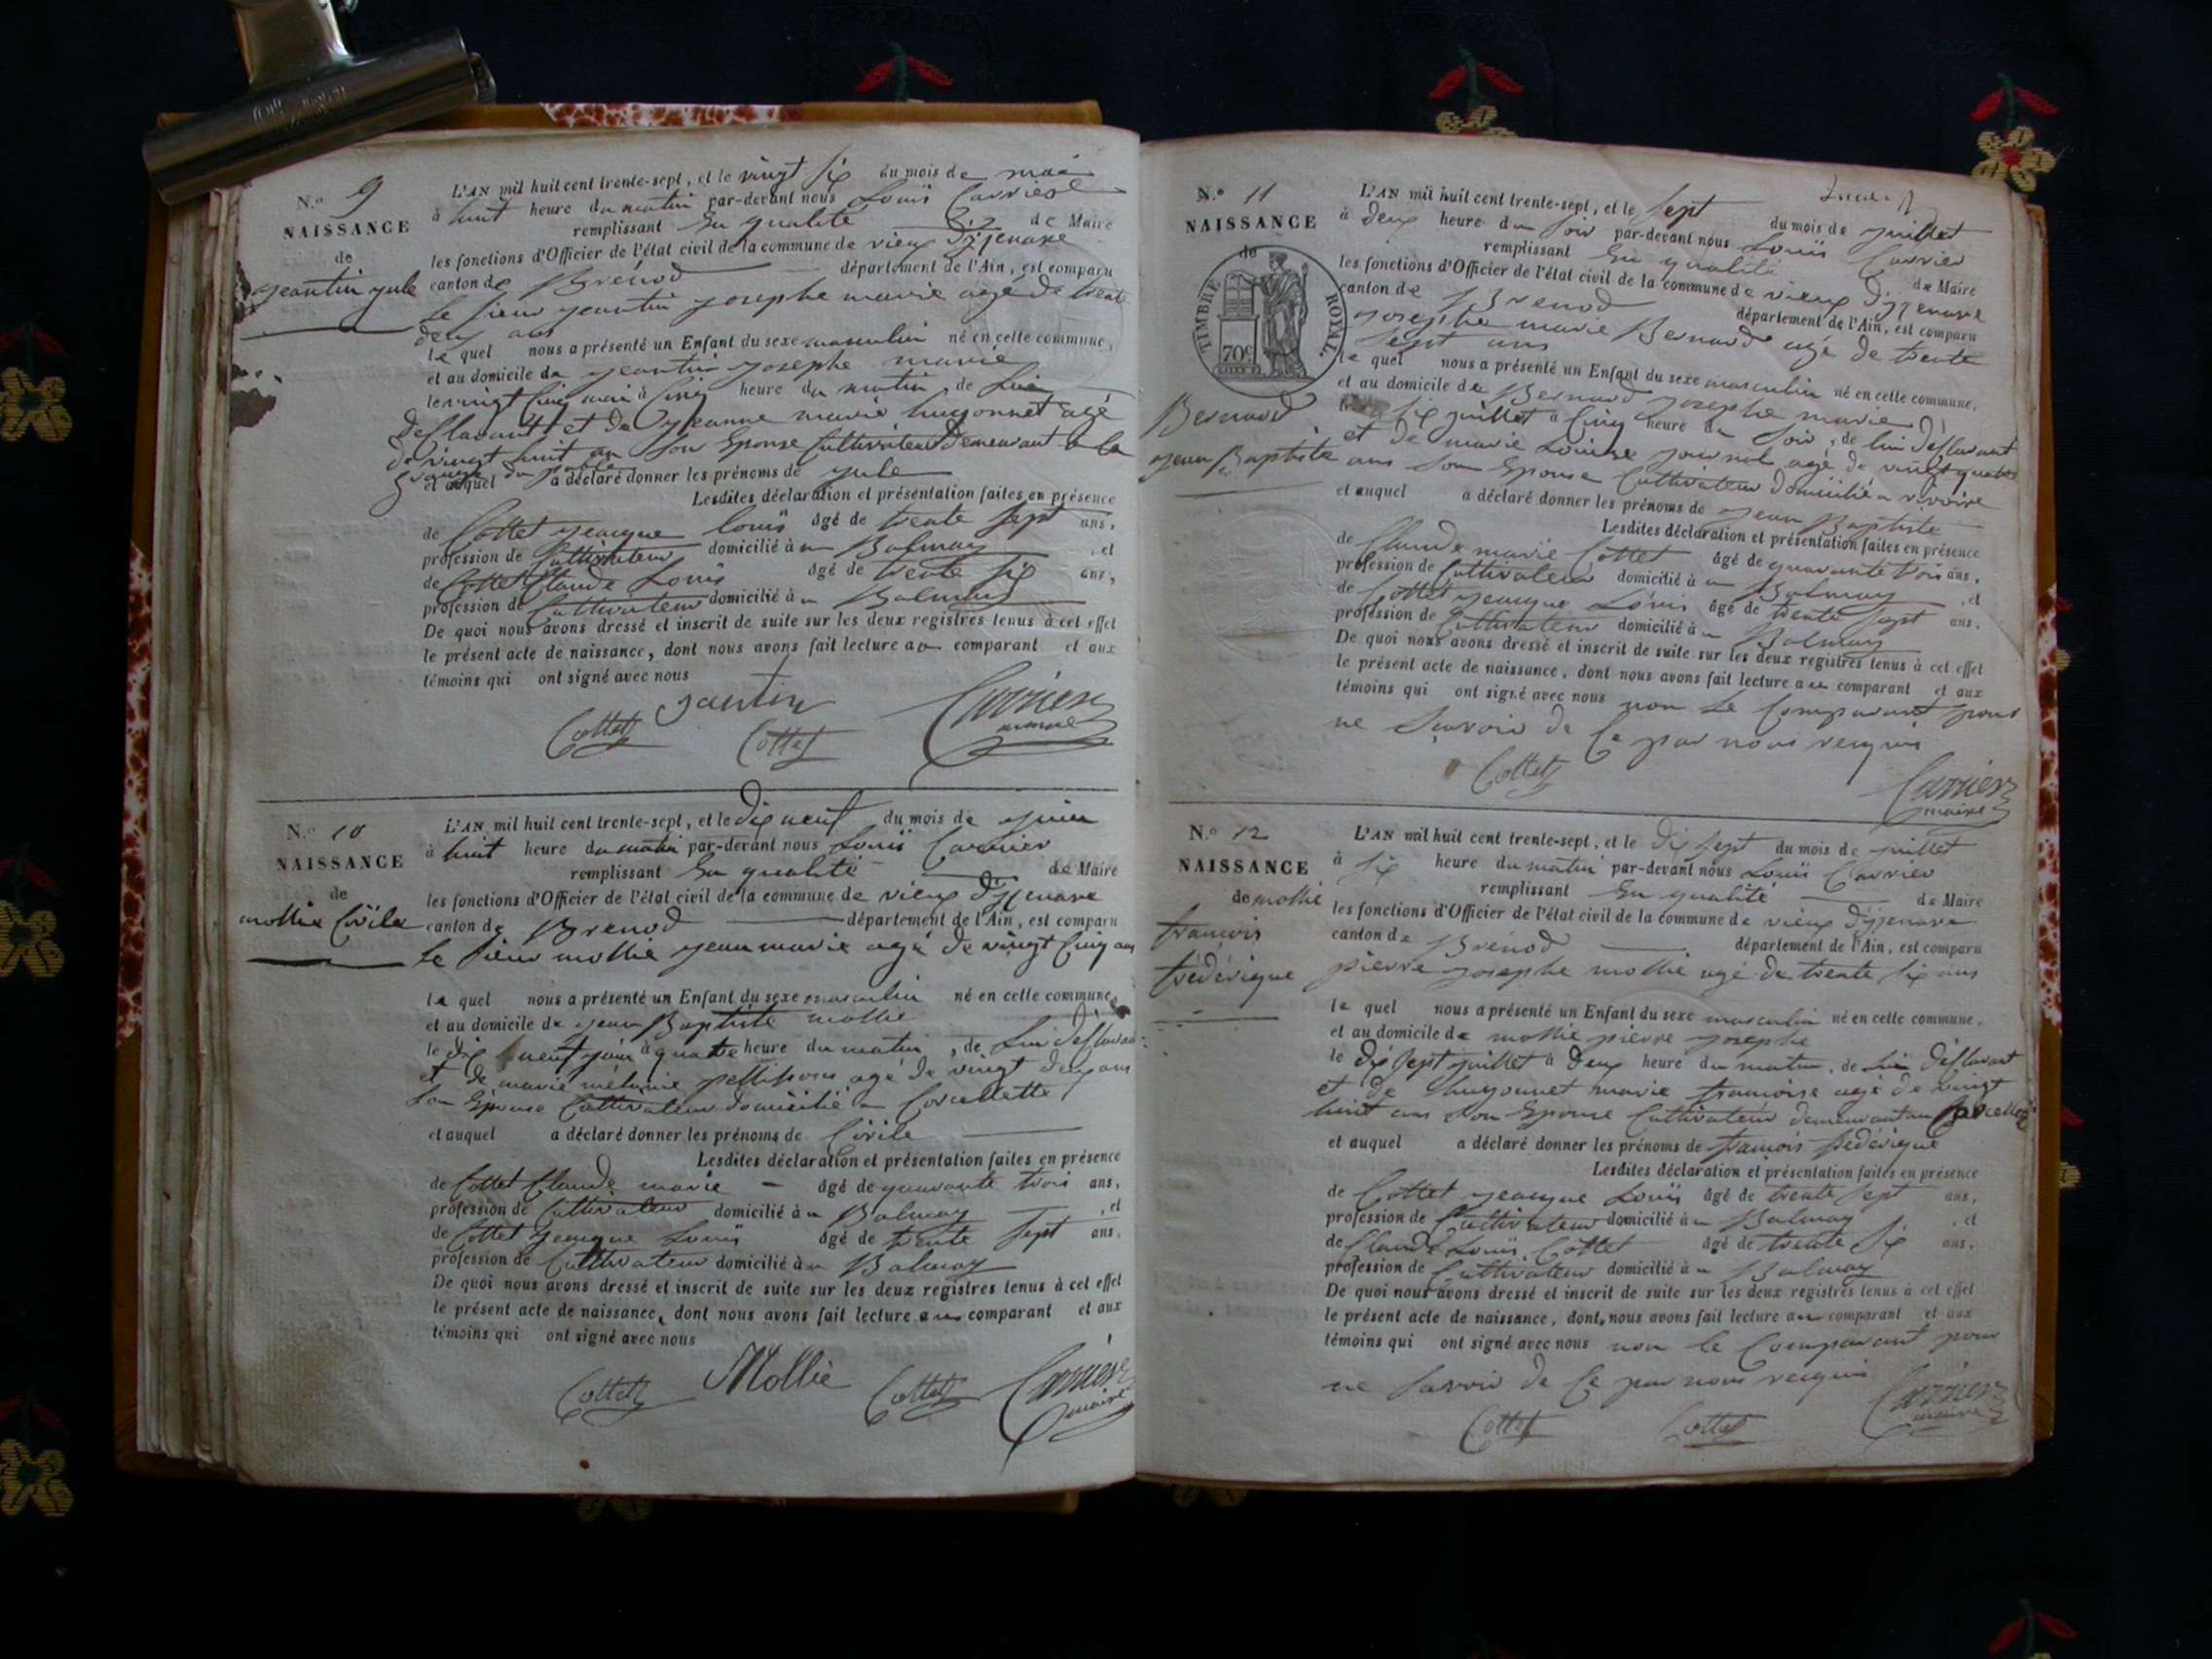 N.o 9
NAISSANCE
de
jeantin jule
L'AN mil huit cent trente-sept, et le vingt six du mois de mai
à huit heure du matin par-devant nous Louis Carrier
remplissant En qualité de Maire
les fonctions d'Officier de l'état civil de la commune de vieux d'izenave
canton de Brénod département de l'Ain, est comparu
le sieur jeantin josephe marie agé de trente
deux ans
le quel nous a présenté un Enfant du sexe masculin né en cette commune,
et au domicile de jeantin josephe marie
le vingt cinq mai à cinq heure du matin, de lui
desclarant et de jeanne marie hugonnet agé
de vingt huit an son Epouse Cultivateur demeurant a la
grange du
et auquel a déclaré donner les prénoms de jule
Lesdites déclaration et présentation faites en présence
de Cottet jeacque louis âgé de trente sept ans,
profession de Cultivateur domicilié à Balmay, et
de Cottet Claude Louis âgé de trente six ans,
profession de Cultivateur domicilié à Balmay
De quoi nous avons dressé et inscrit de suite sur les deux registres tenus à cet effet
le présent acte de naissance, dont nous avons fait lecture au comparant et aux
témoins qui ont signé avec nous
jantin
Cottet Cottet Carrier
maire
N.o 10
NAISSANCE
de
mollie Cirile
L'AN mil huit cent trente-sept, et le dix neuf du mois de juin
à huit heure du matin par-devant nous Louis Carrier
remplissant En qualité de Maire
les fonctions d'Officier de l'état civil de la commune de vieux d'izenave
canton de Brenod département de l'Ain, est comparu
le sieur mollie jean marie agé de vingt cinq ans
le quel nous a présenté un Enfant du sexe masculin né en cette commune,
et au domicile de jean Baptiste mollie
le dix neuf juin à quatre heure du matin, de lui desclarant
et de marie mélanie pellisson agé de vingt deux ans
son Epouse Cultivateur domicilié a Corcelette
et auquel a déclaré donner les prénoms de Cirile
Lesdites déclaration et présentation faites en présence
de Cottet Claude marie âgé de quarante trois ans,
profession de Cultivateur domicilié à Balmay, et
de Cottet jeacque Louis âgé de trente sept ans,
profession de Cultivateur domicilié à Balmay
De quoi nous avons dressé et inscrit de suite sur les deux registres tenus à cet effet
le présent acte de naissance, dont nous avons fait lecture au comparant et aux
témoins qui ont signé avec nous
Cottet Mollie Cottet Carrier
maire
N.o 11
NAISSANCE
de
TIMBRE ROYAL.
70c
Bernard
jean Baptiste
L'AN mil huit cent trente-sept, et le sept du mois de juillet
à deux heure du soir par-devant nous Louis Carrier
remplissant En qualité de Maire
les fonctions d'Officier de l'état civil de la commune de vieux d'izenave
canton de Brenod département de l'Ain, est comparu
josephe marie Bernard agé de trente
sept ans
le quel nous a présenté un Enfant du sexe masculin né en cette commune,
et au domicile de Bernard josephe marie
le six juillet à cinq heure du soir, de lui desclarant
et de marie Louise journet agé de vingt quatre
ans son Epouse Cultivateur domicilié a
et auquel a déclaré donner les prénoms de jean Baptiste
Lesdites déclaration et présentation faites en présence
de Claude marie Cottet âgé de quarante trois ans,
profession de Cultivateur domicilié à Balmay, et
de Cottet jeacque Louis âgé de trente sept ans,
profession de Cultivateur domicilié à Balmay
De quoi nous avons dressé et inscrit de suite sur les deux registres tenus à cet effet
le présent acte de naissance, dont nous avons fait lecture au comparant et aux
témoins qui ont signé avec nous non le Comparant pour
ne savoir de Ce par nous requis
Cottet Carrier
maire
N.o 12
NAISSANCE
de mollie
francois
fredérique
L'AN mil huit cent trente-sept, et le dix sept du mois de juillet
à six heure du matin par-devant nous Louis Carrier
remplissant En qualité de Maire
les fonctions d'Officier de l'état civil de la commune de vieux d'izenave
canton de Brénod département de l'Ain, est comparu
pierre josephe mollie agé de trente six ans
le quel nous a présenté un Enfant du sexe masculin né en cette commune,
et au domicile de mollie pierre josephe
le dix sept juillet à deux heure du matin, de lui desclarant
et de hugonnet marie francoise agé de vingt
huit ans son Epouse Cultivateur demeurant au
et auquel a déclaré donner les prénoms de francois fredérique
Lesdites déclaration et présentation faites en présence
de Cottet jeacque Louis âgé de trente sept ans,
profession de Cultivateur domicilié à Balmay, et
de Claude Louis Cottet âgé de trente six ans,
profession de Cultivateur domicilié à Balmay
De quoi nous avons dressé et inscrit de suite sur les deux registres tenus à cet effet
le présent acte de naissance, dont nous avons fait lecture au comparant et aux
témoins qui ont signé avec nous non le Comparant pour
ne savoir de Ce par nous requis
Cottet Cottet Carrier
maire